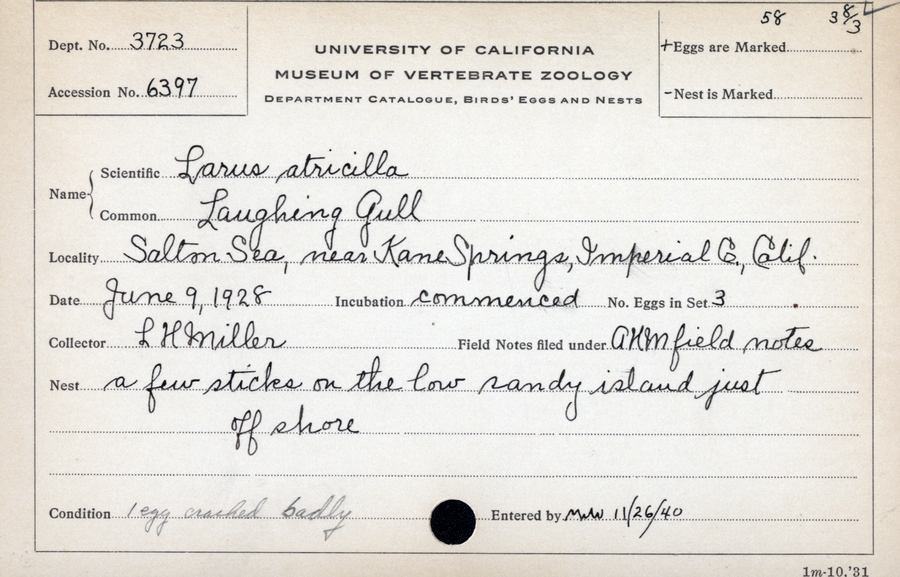 58 38/3
Dept. No. 3723
UNIVERSITY OF CALIFORNIA
+Eggs are Marked
MUSEUM OF VERTEBRATE ZOOLOGY
Accession No. 6397
DEPARTMENT CATALOGUE, BIRDS' EGGS AND NESTS
-Nest is Marked
Name
Scientific Larus atricilla
Common Laughing Gull
Locality Salton Sea, near Kane Springs, Imperial Co., Calif.
Date June 9, 1928 Incubation commenced No. Eggs in Set 3
Collector L H Miller Field Notes filed under AHM field notes
Nest a few sticks on the low sandy island just
off shore
Condition 1 egg crushed badly Entered by MWW 11/26/40
1m-10,'31